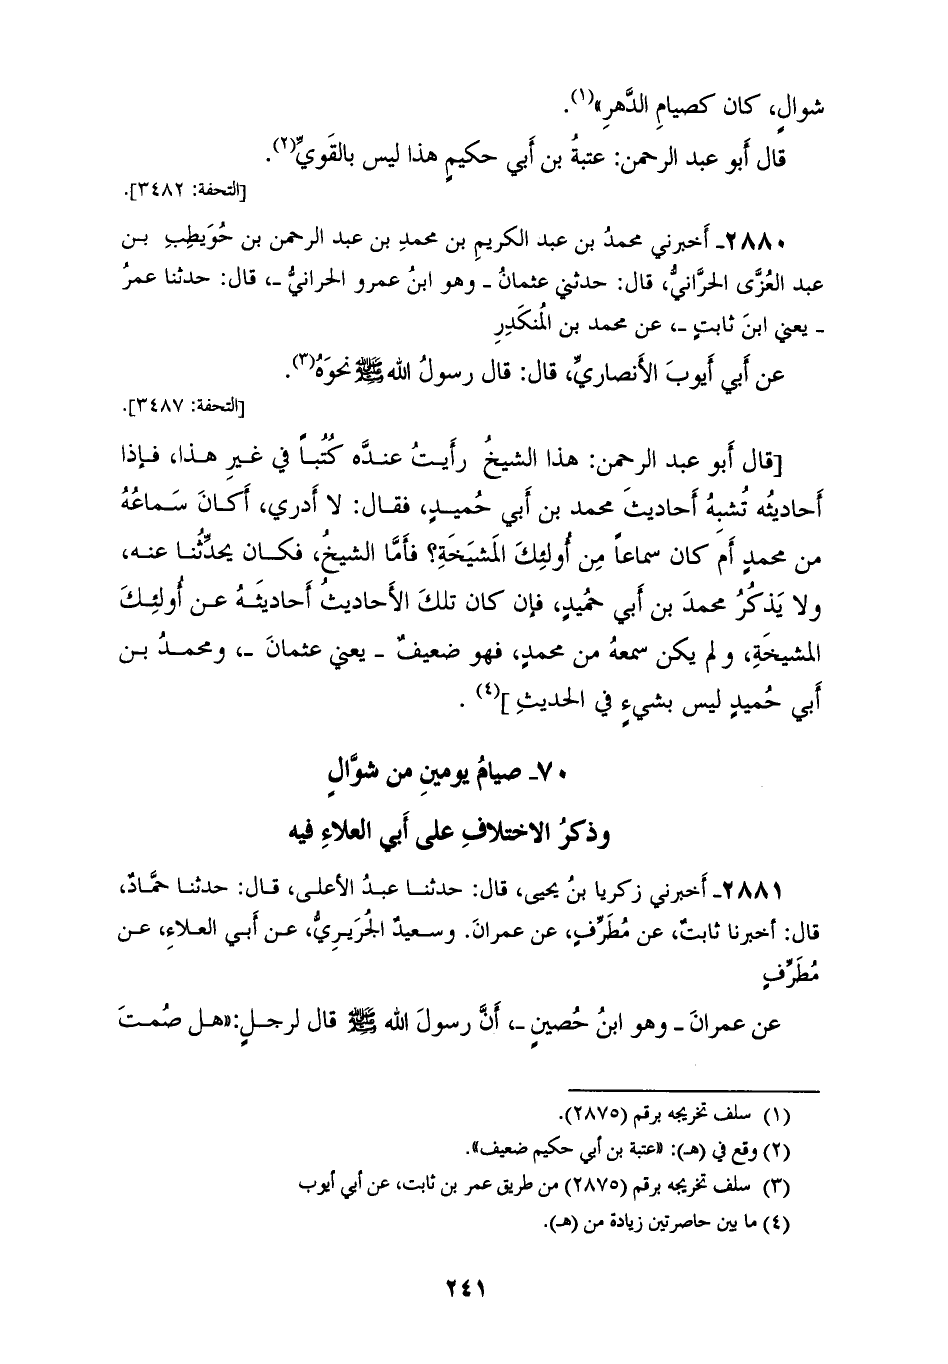 شوالٍ، كان كصيامِ الدَّهرِ»(١).
قال أبو عبد الرحمن: عتبةُ بن أبي حكيمٍ هذا ليس بالقَويِّ(٢).
[التحفة: ٣٤٨٢].
٢٨٨٠ـ أخبرني محمدُ بن عبد الكريمِ بن محمدِ بن عبد الرحمن بن حُوَيطِبِ بـن
عبد العُزَّى الحرَّانيُّ، قال: حدثني عثمانُ ـ وهو ابنُ عمرو الحرانيُّ ـ، قال: حدثنا عمرُ
ـ يعني ابنَ ثابتٍ ـ، عن محمد بن المُنكَدِرِ
عن أبي أيوبَ الأنصاريِّ، قال: قال رسولُ الله ﷺ نحوَهُ(٣).
[التحفة: ٣٤٨٧].
[قال أبو عبد الرحمن: هذا الشيخُ رأيـتُ عنـدَه كُتُبـاً في غـيرِ هـذا، فـإذا
أحاديثُه تُشبِهُ أحاديثَ محمد بن أبي حُميـدٍ، فقـال: لا أدري، أكـانَ سَـماعُهُ
من محمدٍ أم كان سماعاً مِن أُولئِكَ المَشيَخَةِ؟ فأمَّا الشيخُ، فكـان يحدِّثُنـا عنـه،
ولا يَذكُرُ محمدَ بن أبي حُميدٍ، فإن كان تلكَ الأحاديثُ أحاديثَـهُ عـن أُولئِـكَ
المشيخَةِ، و لم يكن سمعهُ من محمدٍ، فهو ضعيفٌ ـ يعني عثمانَ ـ، ومحمـدُ بـن
أبي حُميدٍ ليس بشيءٍ في الحديثِ](٤) .
٧٠ـ صيامُ يومينِ من شوَّالٍ
وذكرُ الاختلافِ على أبي العلاءِ فيه
٢٨٨١ـ أخبرني زكريا بنُ يحيى، قال: حدثنـا عبـدُ الأعلـى، قـال: حدثنـا حمَّادٌ،
قال: أخبرنا ثابتٌ، عن مُطَرِّفٍ، عن عمرانَ. وسـعيدٌ الجُرَيـريُّ، عـن أبـي العـلاءِ، عـن
مُطَرِّفٍ
عن عمرانَ ـ وهو ابنُ حُصينٍ ـ، أنَّ رسولَ الله ﷺ قال لرجـلٍ:«هـل صُمـتَ
(١) سلف تخريجه برقم (٢٨٧٥).
(٢) وقع في (هـ): «عتبة بن أبي حكيم ضعيف».
(٣) سلف تخريجه برقم (٢٨٧٥) من طريق عمر بن ثابت، عن أبي أيوب
(٤) ما بين حاصرتين زيادة من (هـ).
٢٤١